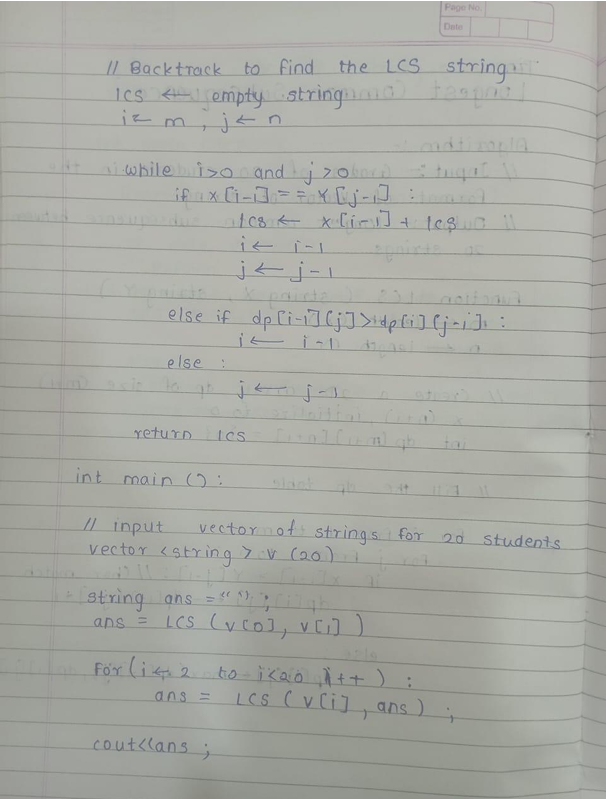 Page No.
Date
// Backtrack to find the LCS string
lcs ← empty string
i ← m , j ← n
while i>0 and j>0
if x[i-1] == Y[j-1] :
lcs ← x[i-1] + lcs
i ← i-1
j ← j-1
else if dp[i-1][j]>dp[i][j-1] :
i ← i-1
else :
j ← j-1
return lcs
int main () :
// input vector of strings for 20 students
vector <string> v (20)
string ans = "" ;
ans = LCS (v[0], v[1])
For (i ← 2 to i<20 i++) :
ans = LCS (v[i], ans) ;
cout<<ans ;